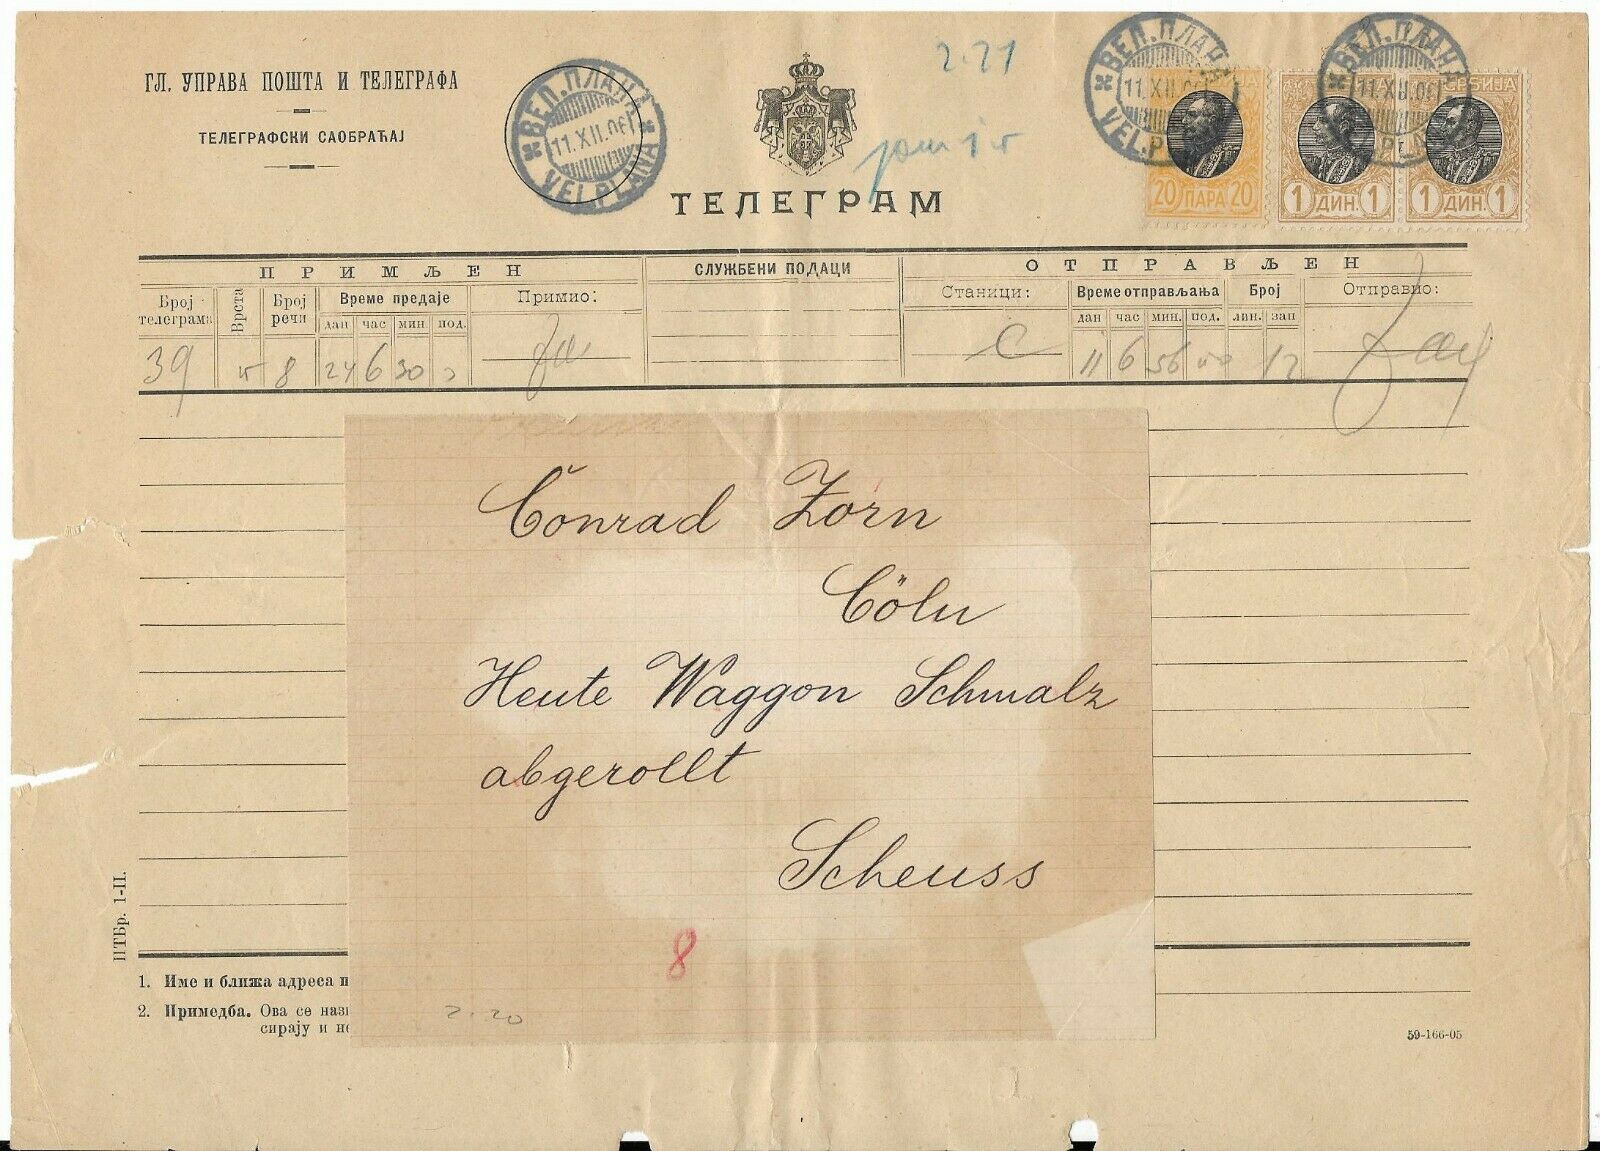 ГЛ. УПРАВА ПОШТА И ТЕЛЕГРАФА
ТЕЛЕГРАФСКИ САОБРАЋАЈ
ВЕЛ.ПЛАНА
11.XII.06
VEL.PLANA
2.21
ТЕЛЕГРАМ
ВЕЛ.ПЛАНА
11.XII.06
VEL.P
20 ПАРА 20
ВЕЛ.ПЛАНА
11.XII.06
PLANA
СРБИЈА
1 ДИН. 1
1 ДИН. 1
ПРИМЉЕН
СЛУЖБЕНИ ПОДАЦИ
ОТПРАВЉЕН
Број телеграма
Врста
Број речи
Време предаје
Примио:
Станици:
Време отправљања
Број
Отправио:
дан час мин. под.
дан час мин. под. лин. зап
39 8 24 6 30
11 6 56 12
Conrad Zorn
Cöln
Heute Waggon Schmalz
abgerollt
Scheuss
8
2.20
ПТБр. 1-II.
1. Име и ближа адреса п
2. Примедба. Ова се нази
сирају и не
59-166-05